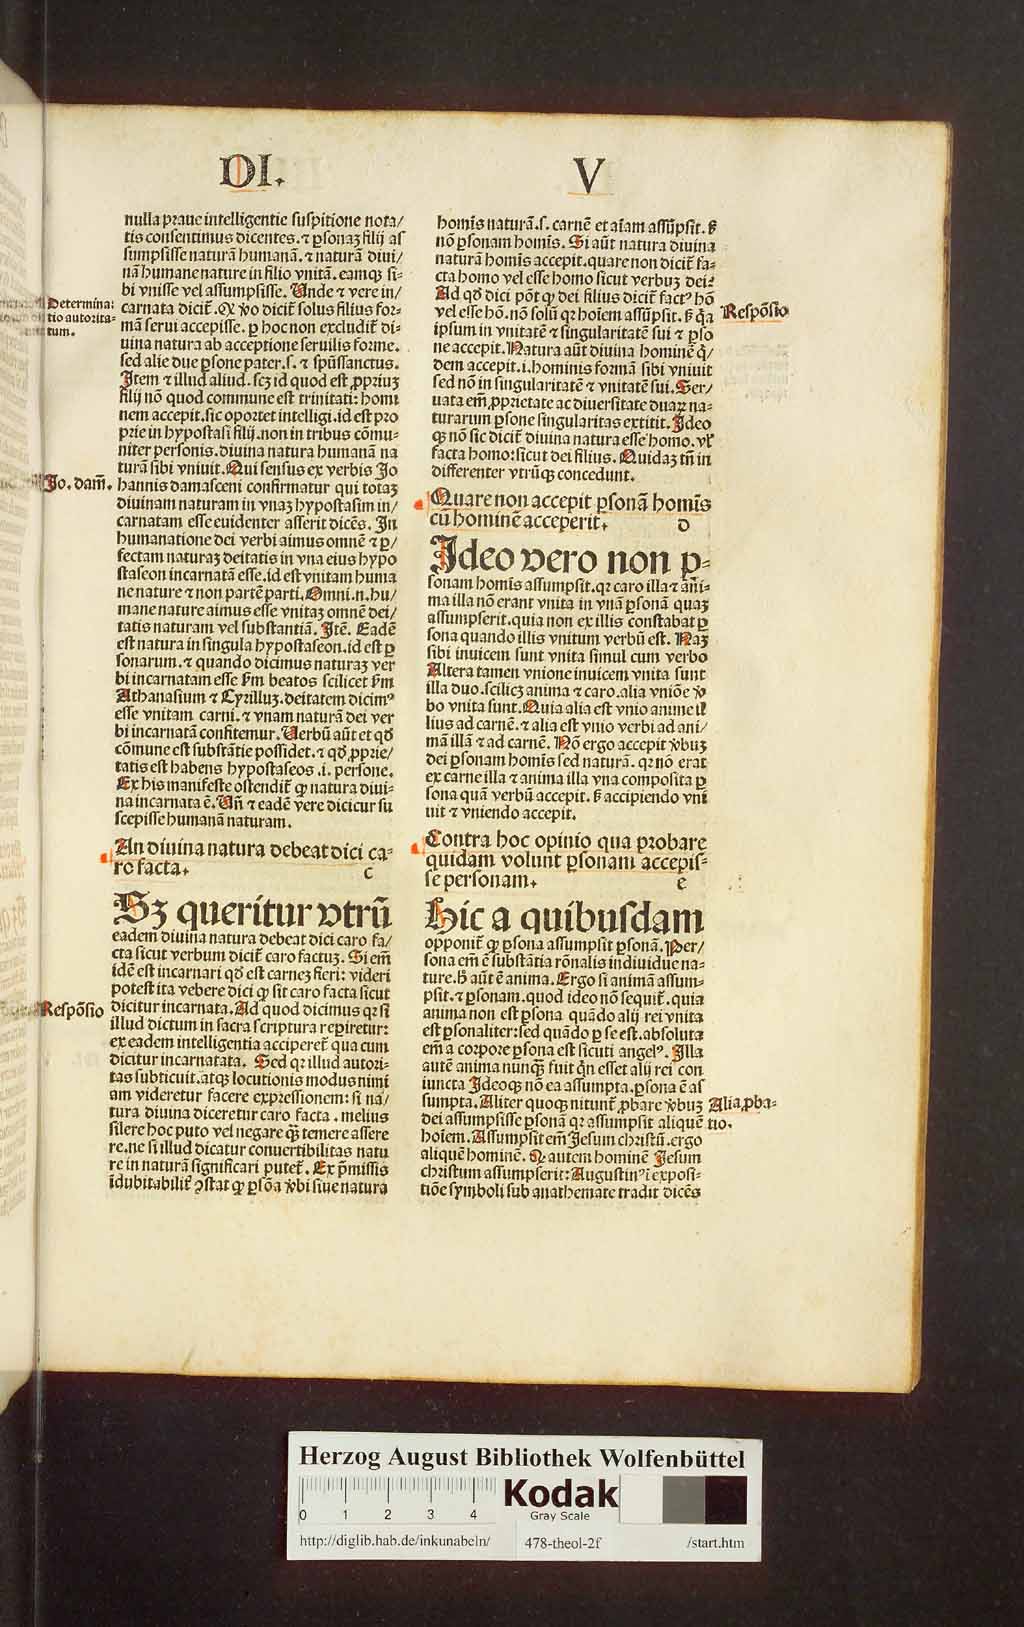 DI. V
nulla praue intelligentie suspitione nota/
tis consentimus dicentes. ⁊ ꝑsonaꝫ filij as
sumpsisse naturā humanā. ⁊ naturā diui/
nā humane nature in filio vnitā. eamqꝫ si-
bi vnisse vel assumpsisse. Unde ⁊ vere in/
carnata dicit̃. Qꝛ ꝟo dicit̃ solus filius for-
mā serui accepisse. ꝑ hoc non excludit̃ di-
uina natura ab acceptione seruilis forme.
sed alie due ꝑsone pater .s. ⁊ spūssanctus.
Item ⁊ illud aliud. scꝫ id quod est ꝓpriuꝫ
filij nō quod commune est trinitati: homi
nem accepit. sic oportet intelligi. id est pro
prie in hypostasi filij. non in tribus cōmu-
niter personis. diuina natura humanā na
turā sibi vniuit. Qui sensus ex verbis Jo
hannis damasceni confirmatur qui totaꝫ
diuinam naturam in vnaꝫ hypostasim in/
carnatam esse euidenter asserit dicēs. In
humanatione dei verbi aimus omnē ⁊ ꝑ/
fectam naturaꝫ deitatis in vna eius hypo
staseon incarnatā esse. id est vnitam huma
ne nature ⁊ non partē parti. Omni .n. hu/
mane nature aimus esse vnitaꝫ omnē dei/
tatis naturam vel substantiā. Itē. Eadē
est natura in singula hypostaseon. id est ꝑ
sonarum. ⁊ quando dicimus naturaꝫ ver
bi incarnatam esse ẜm beatos scilicet ẜm
Athanasium ⁊ Cyrilluꝫ. deitatem dicimꝰ
esse vnitam carni. ⁊ vnam naturā dei ver
bi incarnatā confitemur. Uerbū aūt et qđ
cōmune est substātie possidet. ⁊ qđ ꝓprie/
tatis est habens hypostaseos .i. persone.
Ex his manifeste ostendit̃ ꝙ natura diui-
na incarnata ē. Uñ ⁊ eadē vere dicicur su
scepisse humanā naturam.
An diuina natura debeat dici ca-
ro facta. c
Sꝫ queritur vtrū
eadem diuina natura debeat dici caro fa/
cta sicut verbum dicit̃ caro factuꝫ. Si em̄
idē est incarnari qđ est carneꝫ fieri: videri
potest ita vebere dici ꝙ sit caro facta sicut
dicitur incarnata. Ad quod dicimus qꝛ si
illud dictum in sacra scriptura reperiretur:
ex eadem intelligentia acciperet̃ qua cum
dicitur incarnatata. Sed qꝛ illud autori-
tas subticuit. atqꝫ locutionis modus nimi
am videretur facere expressionem: si na/
tura diuina diceretur caro facta. melius
silere hoc puto vel negare qꝫ̄ temere assere
re. ne si illud dicatur conuertibilitas natu
re in naturā significari putet̃. Ex p̄missis
idubitabilit̃ ꝯstat ꝙ ꝑsōa ꝟbi siue natura
Determina:
tio autorita-
tum.
Jo. dam̄.
Respōsio
homis naturā .s. carnē et aiam assūpsit. ẜ
nō ꝑsonam homis. Si aūt natura diuina
naturā homis accepit. quare non dicit̃ fa-
cta homo vel esse homo sicut verbuꝫ dei?
Ad qđ dici pōt ꝙ dei filius dicit̃ factꝰ hō
vel esse hō. nō solū qꝛ hoiem assūpsit. ẜ qꝛ̄
ipsum in vnitatē ⁊ singularitatē sui ⁊ ꝑso
ne accepit. Natura aūt diuina hominē q̇/
dem accepit .i. hominis formā sibi vniuit
sed nō in singularitatē ⁊ vnitatē sui. Ser/
uata em̄ ꝓprietate ac diuersitate duaꝝ na-
turarum ꝑsone singularitas extitit. Ideo
qꝫ nō sic dicit̃ diuina natura esse homo. vł
facta homo: sicut dei filius. Quidaꝫ tn̄ in
differenter vtrūqꝫ concedunt.
Quare non accepit ꝑsonā homis
cū hominē acceperit. d
Ideo vero non ꝑ-
sonam homis assumpsit. qꝛ caro illa ⁊ ani-
ma illa nō erant vnita in vnā ꝑsonā quaꝫ
assumpserit. quia non ex illis constabat ꝑ
sona quando illis vnitum verbū est. Naꝫ
sibi inuicem sunt vnita simul cum verbo
Altera tamen vnione inuicem vnita sunt
illa duo. scilicꝫ anima ⁊ caro. alia vniōe ꝟ
bo vnita sunt. Quia alia est vnio anime il
lius ad carnē. ⁊ alia est vnio verbi ad ani/
mā illā ⁊ ad carnē. Nō ergo accepit ꝟbuꝫ
dei ꝑsonam homis sed naturā. qꝛ nō erat
ex carne illa ⁊ anima illa vna composita ꝑ
sona quā verbū accepit. ẜ accipiendo vni
uit ⁊ vniendo accepit.
Contra hoc opinio qua probare
quidam volunt ꝑsonam accepis-
se personam. e
Hic a quibusdam
opponit̃ ꝙ ꝑsona assumpsit ꝑsonā. Per/
sona em̄ ē substātia rōnalis indiuidue na-
ture. ħ aūt ē anima. Ergo si animā assum-
psit. ⁊ ꝑsonam. quod ideo nō sequit̃. quia
anima non est ꝑsona quādo alij rei vnita
est ꝑsonaliter: sed quādo ꝑ se est. absoluta
em̄ a corpore ꝑsona est sicuti angelꝰ. Illa
autē anima nunqꝫ̄ fuit qn̄ esset alij rei con
iuncta Ideoqꝫ nō ea assumpta. ꝑsona ē as
sumpta. Aliter quoqꝫ nitunt̃ ꝓbare ꝟbuꝫ
dei assumpsisse ꝑsonā qꝛ assumpsit aliquē
hoiem. Assumpsit em̄ Jesum christū. ergo
aliquē hominē. Q autem hominē Jesum
christum assumpserit: Augustinꝰ ī exposi-
tiōe symboli sub anathemate tradit dicēs
Respōsio
Alia ꝓba-
tio.
Herzog August Bibliothek Wolfenbüttel
0 1 2 3 4
Kodak
Gray Scale
http://diglib.hab.de/inkunabeln/ 478-theol-2f /start.htm